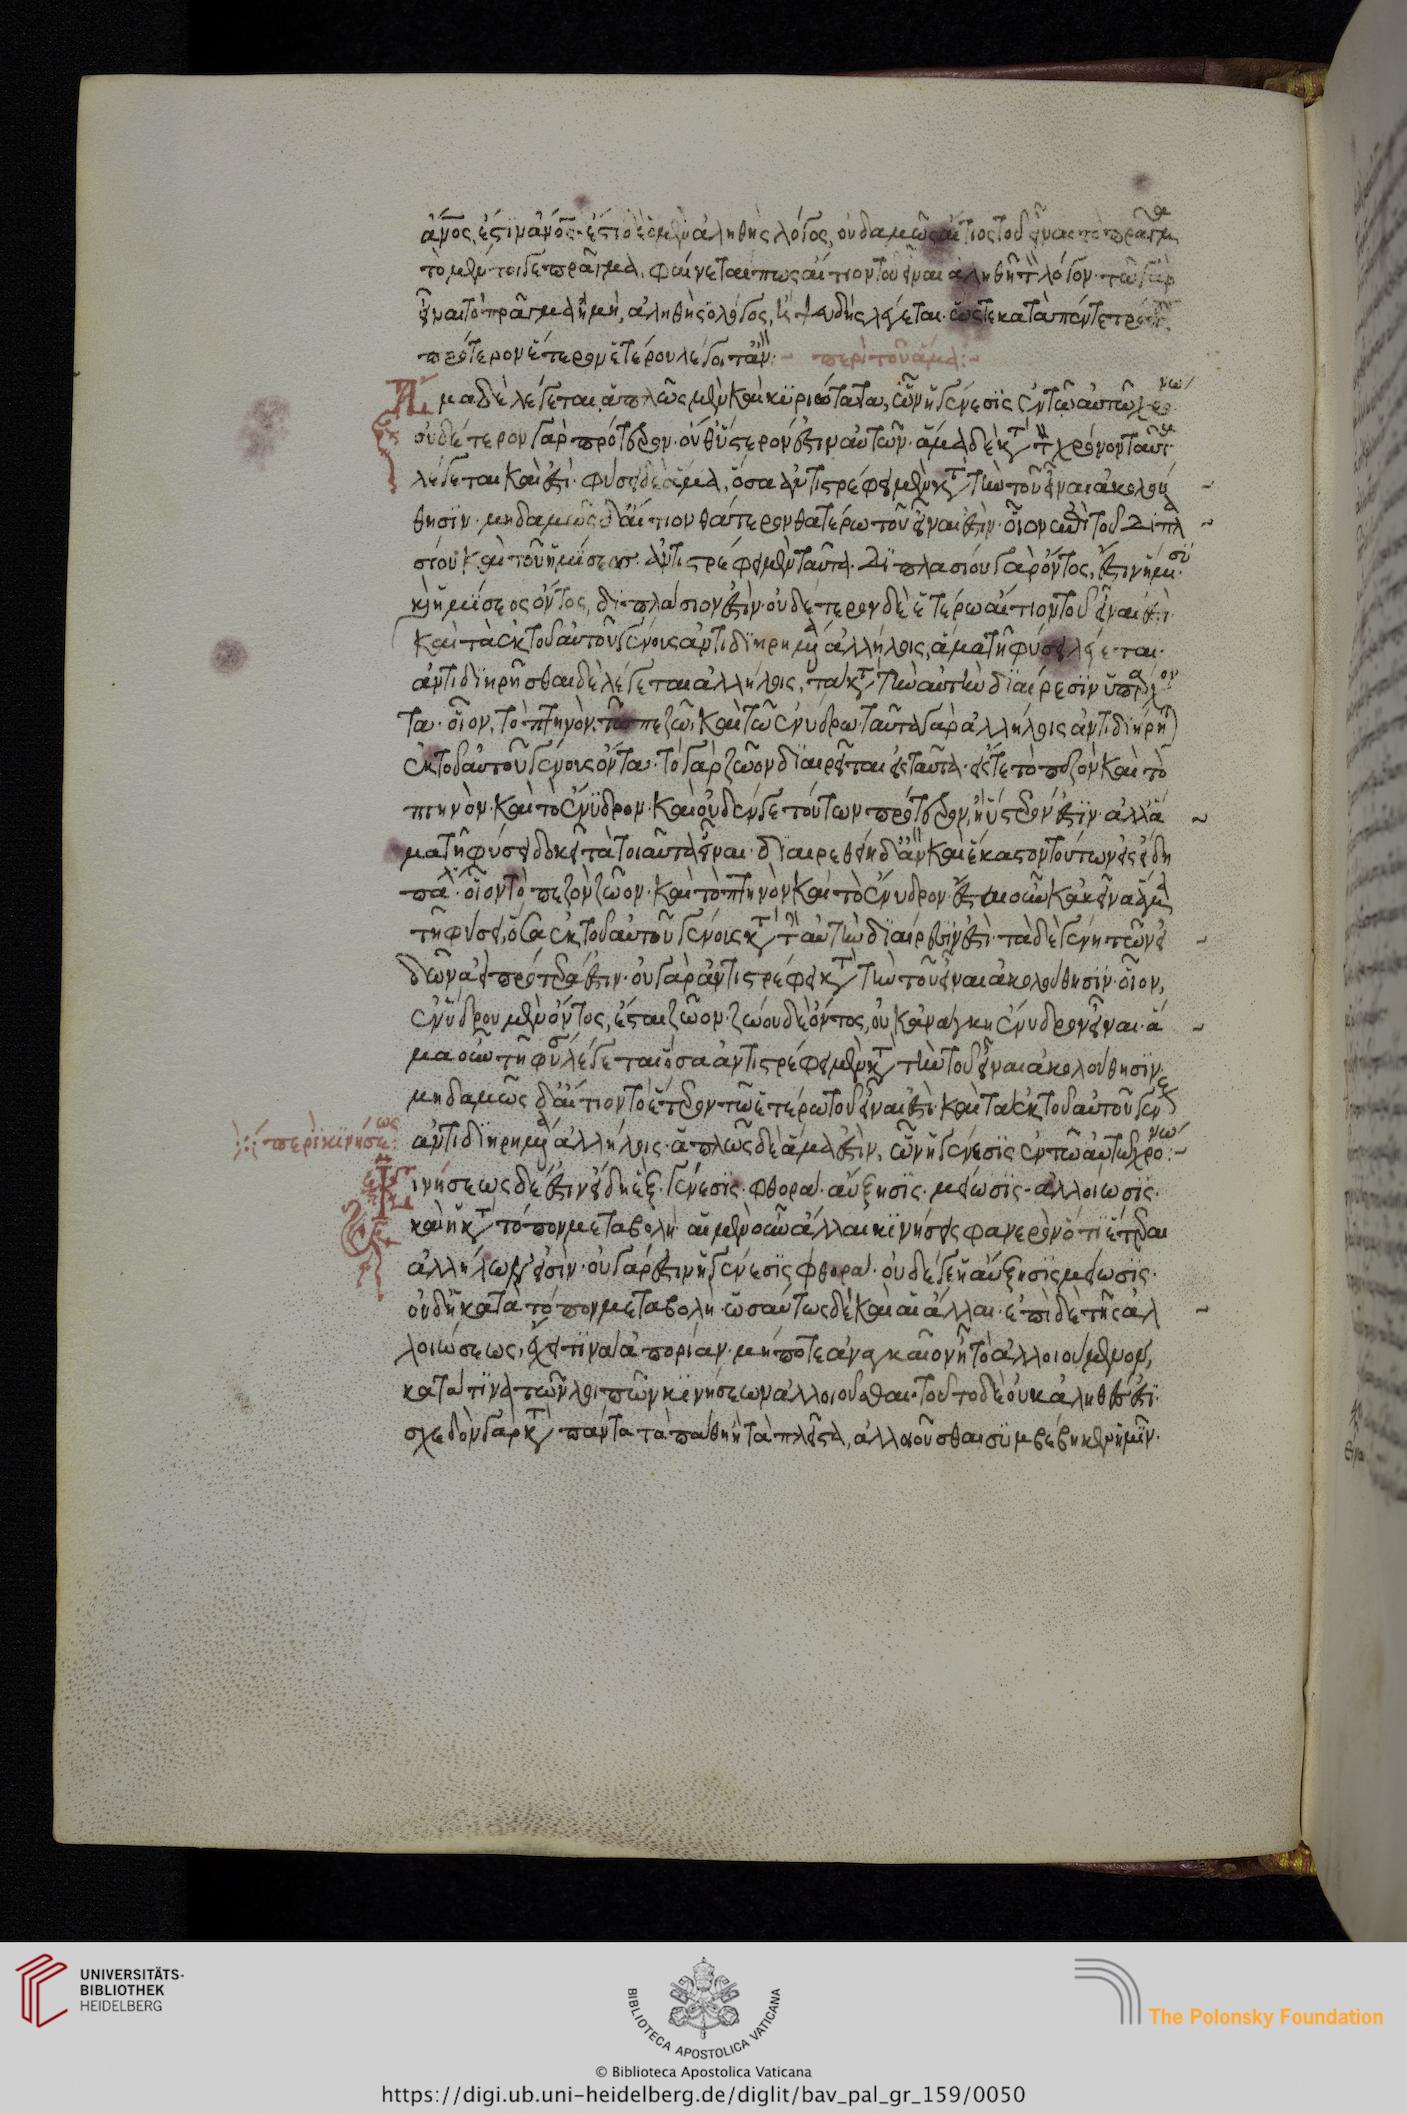 ἄνος, ἔστιν ἄνος· ἔστι δὲ ὁ μὲν ἀληθὴς λόγος, οὐδαμῶς αἴτιος τοῦ εἶναι τὸ πρᾶγμα
τὸ μέντοι γε πρᾶγμα, φαίνεταί πως αἴτιον τοῦ εἶναι ἀληθῆ τὸν λόγον· τῶ γὰρ
εἶναι τὸ πρᾶγμα ἢ μὴ, ἀληθὴς ὁ λόγος, ἢ ψευδὴς λέγεται· ὥστε κατὰ πέντε τρόπους
πρότερον ἕτερον ἑτέρου λέγοιτ' ἄν:- περὶ τοῦ ἅμα:-
Ἅμα δὲ λέγεται, ἁπλῶς μὲν καὶ κυριώτατα, ὧν ἡ γένεσις ἐν τῶ αὐτῶ χρόνω
οὐδέτερον γὰρ πρότερον· οὐδ' ὕστερόν ἐστιν αὐτῶν· ἅμα δὲ κατὰ τὸν χρόνον ταῦτα
λέγεται καὶ ἐστί· φύσει δὲ ἅμα, ὅσα ἀντιστρέφει μὲν κατὰ τὴν τοῦ εἶναι ἀκολού
θησιν· μηδαμῶς δ' αἴτιον θάτερον θατέρω τοῦ εἶναί ἐστιν· οἷον ἐπὶ τοῦ διπλα
σίου καὶ τοῦ ἡμίσεος· ἀντιστρέφει μὲν ταῦτα· διπλασίου γὰρ ὄντος, ἔστιν ἥμισυ·
καὶ ἡμίσεος ὄντος, διπλάσιόν ἐστιν· οὐδέτερον δὲ ἑτέρω αἴτιον τοῦ εἶναί ἐστι·
καὶ τὰ ἐκ τοῦ αὐτοῦ γένους ἀντιδιηρημένα ἀλλήλοις, ἅμα τῆ φύσει λέγεται·
ἀντιδιηρῆσθαι δὲ λέγεται ἀλλήλοις, τὰ κατὰ τὴν αὐτὴν διαίρεσιν ὑπάρχον
τα· οἷον, τὸ πτηνὸν, τῶ πεζῶ, καὶ τῶ ἐνύδρω· ταῦτα γὰρ ἀλλήλοις ἀντιδιήρηται
ἐκ τοῦ αὐτοῦ γένους ὄντα· τὸ γὰρ ζῶον διαιρεῖται εἰς ταῦτα· εἴς τε τὸ πεζὸν καὶ τὸ
πτηνὸν· καὶ τὸ ἔνυδρον· καὶ οὐδέν γε τούτων πρότερον, ἢ ὕστερόν ἐστιν· ἀλλ' ἅ
μα τῆ φύσει δοκεῖ τὰ τοιαῦτα εἶναι· διαιρεθείη δ' ἂν καὶ ἕκαστον τούτων εἰς εἴδη
πάλιν· οἷον τὸ πεζὸν ζῶον· καὶ τὸ πτηνὸν καὶ τὸ ἔνυδρον· ἔσται οὖν κἀκεῖνα ἅμα
τῆ φύσει, ὅσα ἐκ τοῦ αὐτοῦ γένους κατὰ τὴν αὐτὴν διαίρεσίν ἐστι· τὰ δὲ γένη τῶν εἰ
δῶν ἀεὶ πρότερά ἐστιν· οὐ γὰρ ἀντιστρέφει κατὰ τὴν τοῦ εἶναι ἀκολούθησιν· οἷον,
ἐνύδρου μὲν ὄντος, ἔσται ζῶον· ζώου δὲ ὄντος, οὐκ ἀνάγκη ἔνυδρον εἶναι· ἅ
μα οὖν τῆ φύσει λέγεται ὅσα ἀντιστρέφει μὲν κατὰ τὴν τοῦ εἶναι ἀκολούθησιν·
μηδαμῶς δ' αἴτιον τὸ ἕτερον τῶ ἑτέρω τοῦ εἶναί ἐστι· καὶ τὰ ἐκ τοῦ αὐτοῦ γένους
ἀντιδιηρημένα ἀλλήλοις· ἁπλῶς δὲ ἅμα ἐστὶν, ὧν ἡ γένεσις ἐν τῶ αὐτῶ χρόνω:-
περὶ κινήσεως:
Κινήσεως δέ ἐστιν εἴδη ἕξ· γένεσις· φθορά· αὔξησις· μείωσις· ἀλλοίωσις·
καὶ ἡ κατὰ τόπον μεταβολή· αἱ μὲν οὖν ἄλλαι κινήσεις φανερὸν ὅτι ἕτεραι
ἀλλήλων εἰσίν· οὐ γάρ ἐστιν ἡ γένεσις φθορά· οὐδέ γε ἡ αὔξησις μείωσις·
οὐδὲ ἡ κατὰ τόπον μεταβολή· ὡσαύτως δὲ καὶ αἱ ἄλλαι· ἐπὶ δὲ τῆς ἀλ
λοιώσεως, ἔχει τινὰ ἀπορίαν· μήποτε ἀναγκαῖον ἦ τὸ ἀλλοιούμενον,
κατά τινα τῶν λοιπῶν κινήσεων ἀλλοιοῦσθαι· τοῦτο δὲ οὐκ ἀληθές ἐστι·
σχεδὸν γὰρ κατὰ πάντα τὰ πάθη ἢ τὰ πλεῖστα, ἀλλοιοῦσθαι συμβέβηκεν ἡμῖν·
UNIVERSITÄTS-
BIBLIOTHEK
HEIDELBERG
BIBLIOTECA APOSTOLICA VATICANA
The Polonsky Foundation
© Biblioteca Apostolica Vaticana
https://digi.ub.uni-heidelberg.de/diglit/bav_pal_gr_159/0050